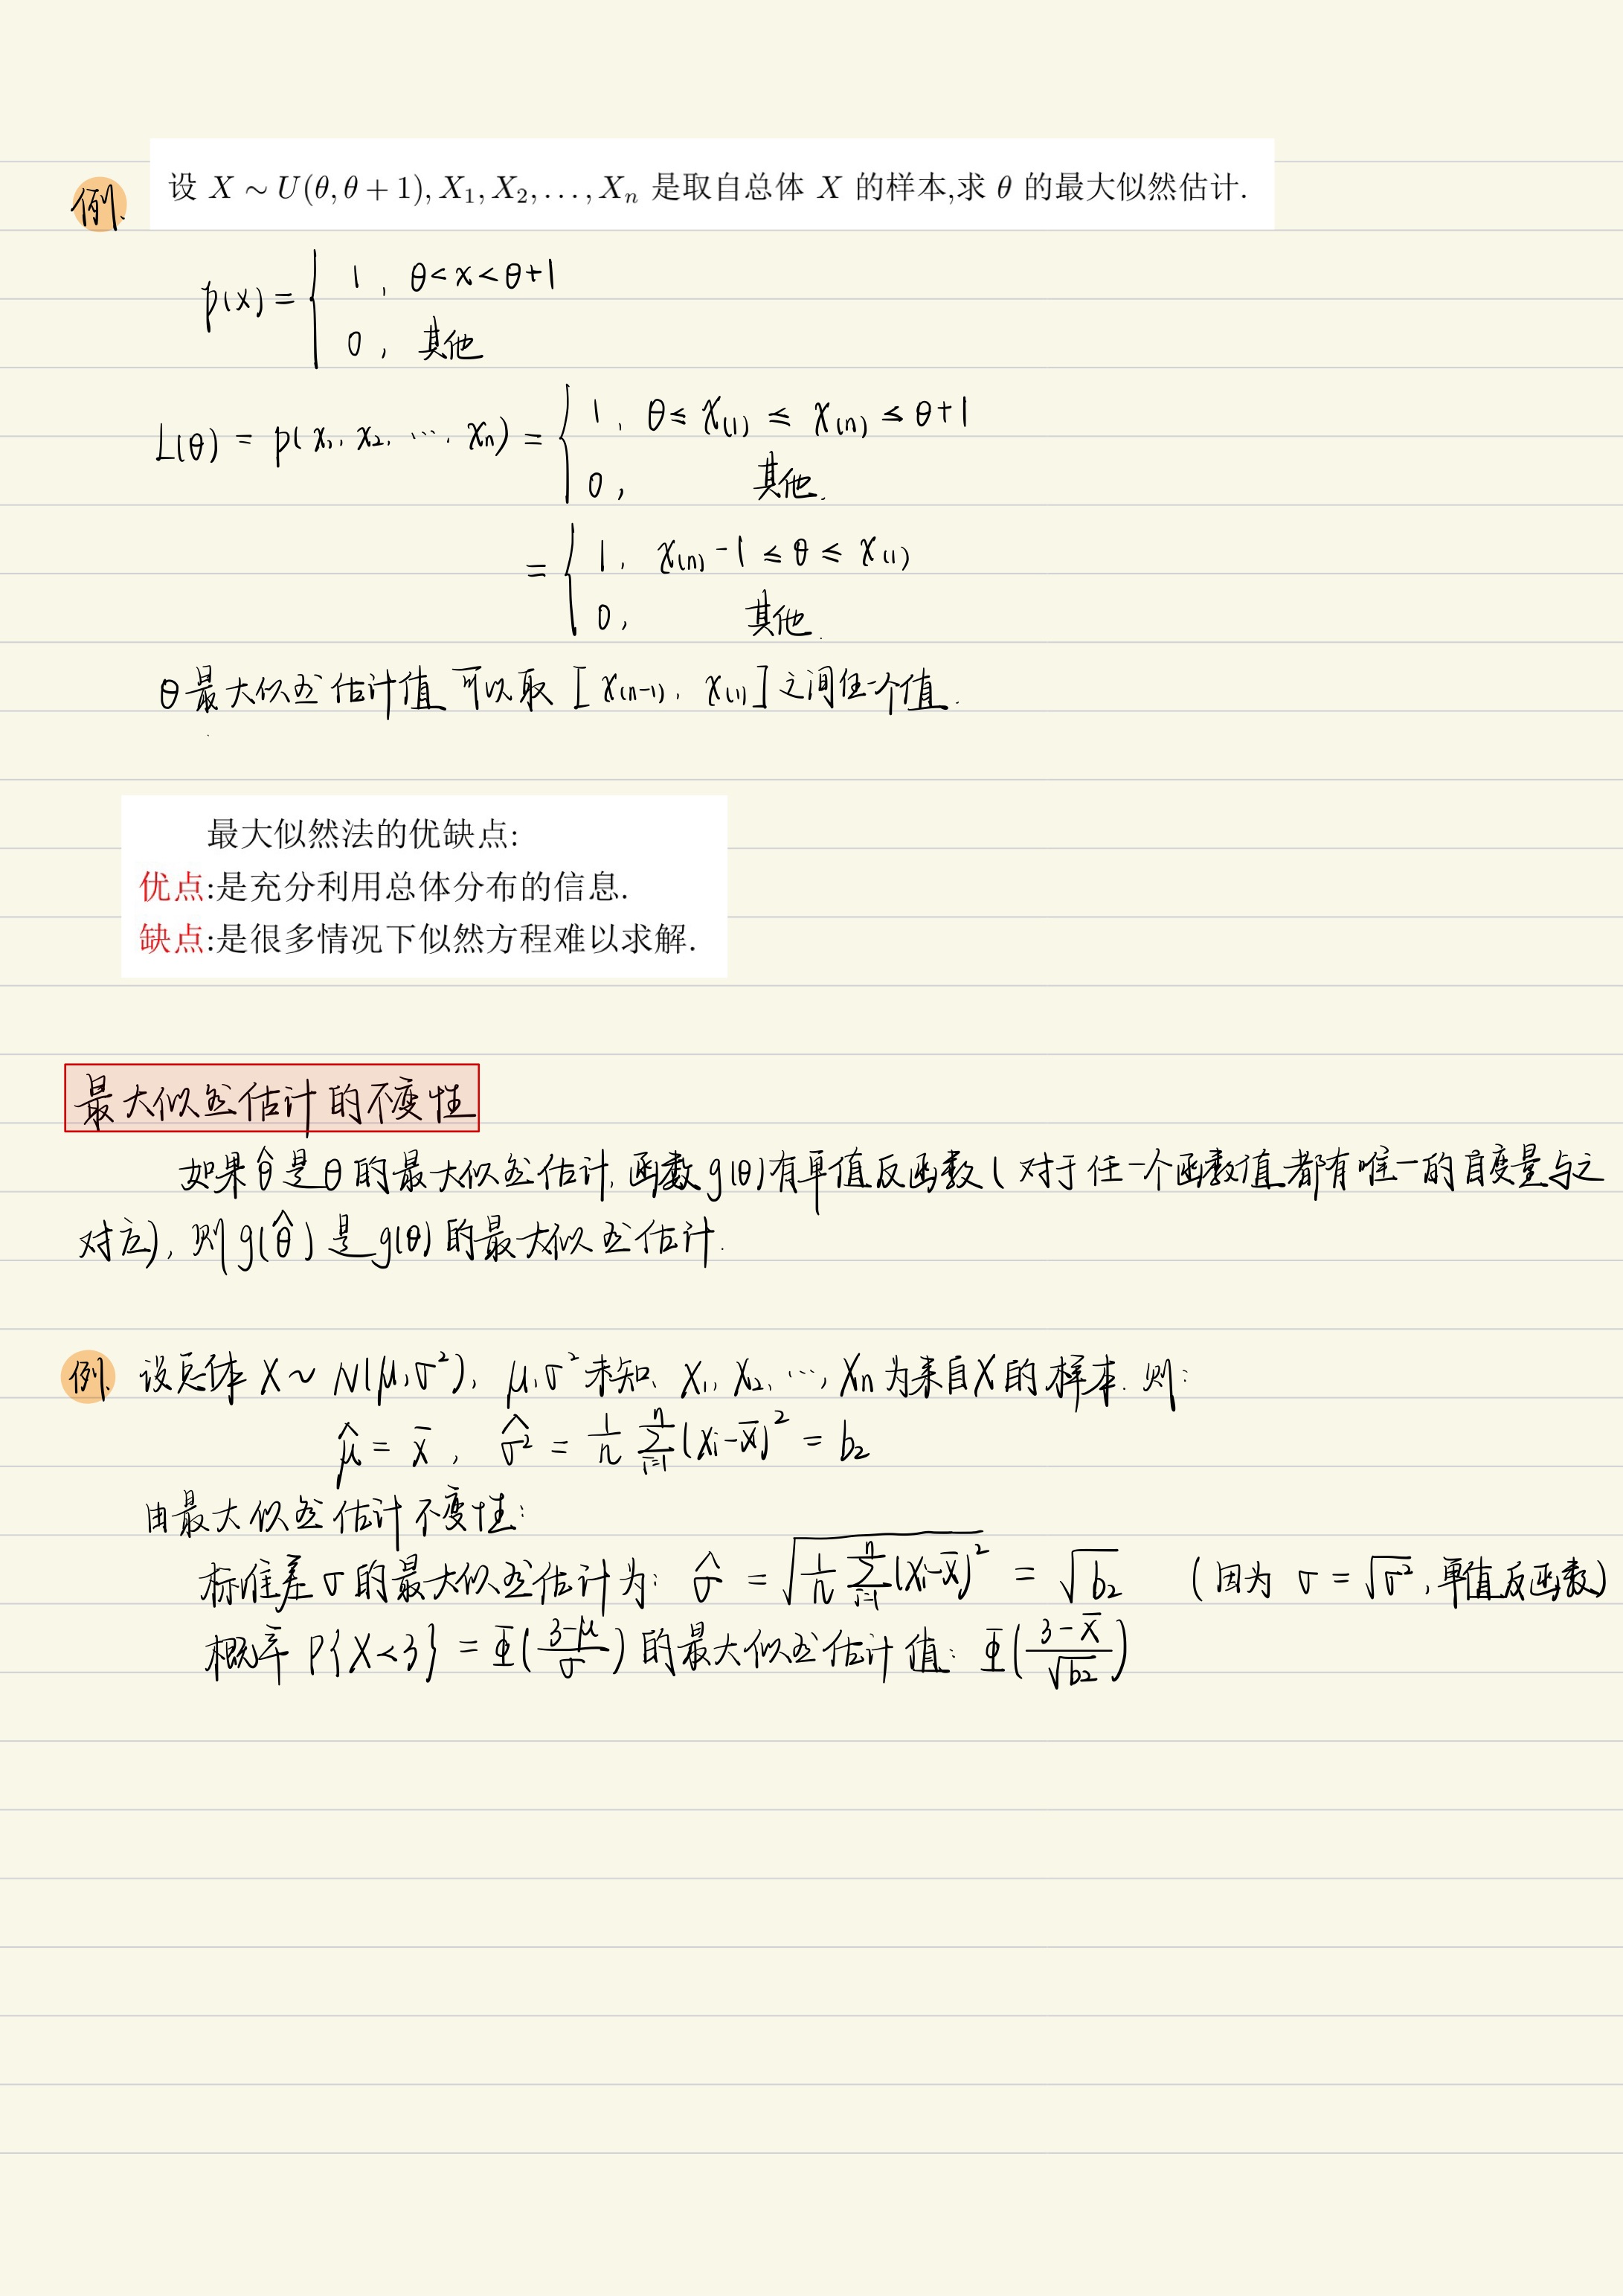 例. 设 X ∼ U(θ, θ + 1), X₁, X₂, …, Xₙ 是取自总体 X 的样本,求 θ 的最大似然估计.
p(x) = { 1, θ<x<θ+1
0, 其他
L(θ) = p(x₁, x₂, ⋯, xₙ) = { 1, θ ≤ x₍₁₎ ≤ x₍ₙ₎ ≤ θ+1
0, 其他.
= { 1, x₍ₙ₎ -1 ≤ θ ≤ x₍₁₎
0, 其他.
θ最大似然估计值可以取 [x₍ₙ₋₁₎, x₍₁₎] 之间任一个值.
最大似然法的优缺点:
优点:是充分利用总体分布的信息.
缺点:是很多情况下似然方程难以求解.
最大似然估计的不变性
如果θ̂是θ的最大似然估计, 函数g(θ)有单值反函数(对于任一个函数值都有唯一的自变量与之
对应), 则g(θ̂)是g(θ)的最大似然估计.
例. 设总体 X ~ N(μ, σ²), μ, σ²未知, X₁, X₂, ⋯, Xₙ为来自X的样本. 则:
μ̂ = x̄, σ̂² = 1/n ∑ᵢ₌₁ⁿ (xᵢ-x̄)² = b₂
由最大似然估计不变性:
标准差σ的最大似然估计为: σ̂ = √(1/n ∑ᵢ₌₁ⁿ (xᵢ-x̄)²) = √b₂ (因为 σ = √σ², 单值反函数)
概率 P{X<3} = Φ((3-μ)/σ) 的最大似然估计值: Φ((3-x̄)/√b₂)